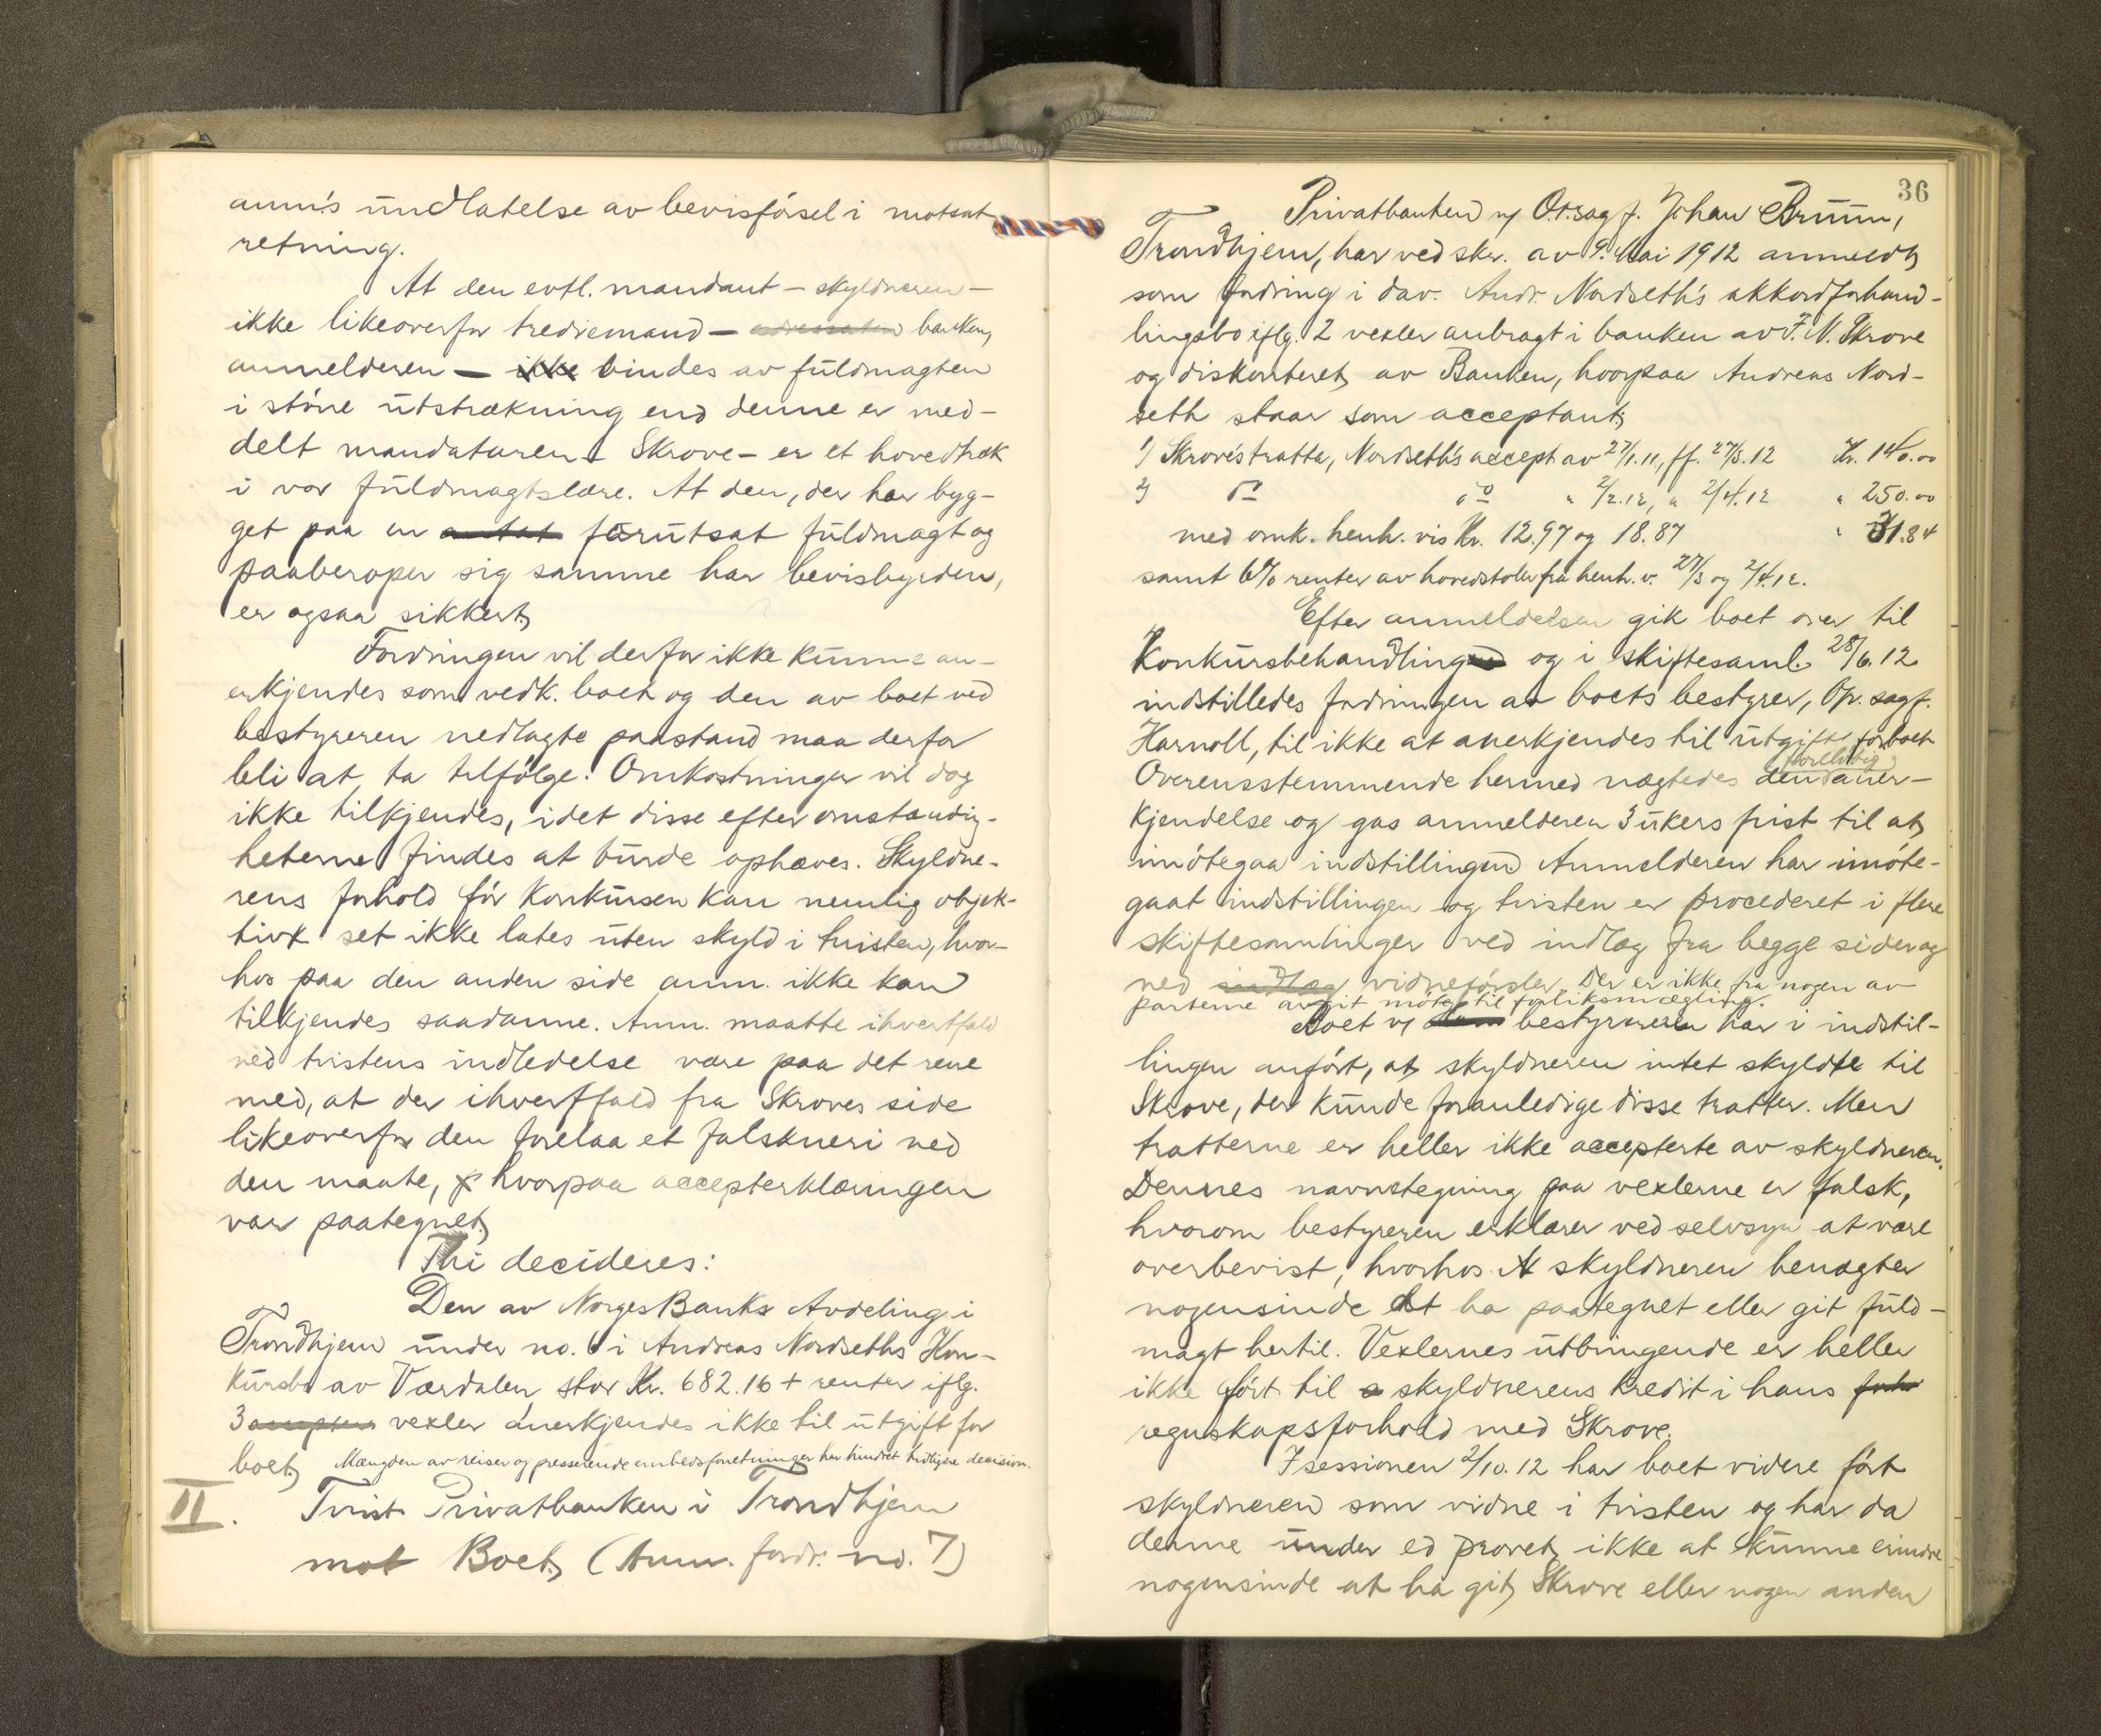 anm's undlatelse av bevisførsel i motsat
retning.
At den evtl. mandant - skyldneren -
ikke likeoverfor trediemand - adressaten banken,
anmelderen - ikke bindes av fuldmagten
i større utstrækning end denne er med-
delt mandataren - Skrove - er et hovedtræk
i vor fuldmagtslære. At den, der har byg-
get paa en antat forutsat fuldmagt og
paaberoper sig samme har bevisbyrden,
er ogsaa sikkert,
Fordringen vil derfor ikke kunne an-
erkjendes som vedk. boet og den av boet ved
bestyreren nedlagte paastand maa derfor
bli at ta tilfølge. Omkostninger vil dog
ikke tilkjendes, idet disse efter omstændig-
heterne findes at burde ophæves. Skyldne-
rens forhold før konkursen kan nemlig objek-
tivt set ikke lates uten skyld i tvisten, hvor-
hos paa den anden side anm. ikke kan
tilkjendes saadanne. Anm. maatte ihvertfald
ved tvistens indledelse være paa det rene
med, at der ihvertfald fra Skroves side
likeoverfor den forelaa et falskneri ved
den maate, hvorpaa accepterklæringen
var paategnet,
Thi decideres:
Den av Norges Banks Avdeling i
Trondhjem under no. 6 i Andreas Nordseths Kon-
kursbo av Værdalen, stor Kr. 682.16 + renter iflg.
3 accepter vexler anerkjendes ikke til utgift for
boet, Mængden av reiser og presserende embedsforretninger har hindret tidligere decision.
II. Tvist Privatbanken i Trondhjem
mot Boet, (Anm. fordr. no. 7)
36
Privatbanken v/ O.r.sagf. Johan Bruun,
Trondhjem, har ved skr. av 9. Mai 1912 anmeldt,
som fordring i dav. Andr. Nordseth's akkordforhand-
lingsbo iflg. 2 vexler anbragt i banken av F. N. Skrove
og diskonteret, av Banken, hvorpaa Andreas Nord-
seth staar som acceptant,
1) Skrove's tratta, Nordseth's accept av 27/1.11, ff. 27/3.12 Kr. 140.00
2) do do " 2/2.12, " 2/4.12 " 250.00
med omk. henh. vis Kr. 12.97 og 18.87 " 31.84
samt 6% renter av hovedstolen fra henh. v. 27/3 og 2/4.12.
Efter anmeldelsen gik boet over til
Konkursbehandling og i skiftesaml. 28/6.12
indstilledes fordringen av boets bestyrer, Op. sagf.
Harnoll, til ikke at anerkjendes til utgift for boet
Overensstemmende hermed nægtedes den foreløbig aner-
kjendelse og gas anmelderen 3 ukers frist til at,
imøtegaa indstillingen. Anmelderen har imøte-
gaat indstillingen og tvisten er procederet i flere
skiftesamlinger ved indlæg fra begge sider og
ved indlæg vidneførsler. Der er ikke fra nogen av
parterne avgit møte til forliksmægling.
Boet v/ bestyreren har i indstil-
lingen anført, at, skyldneren intet skyldte til
Skrove, der kunde foranledige disse tratter. Men
tratterne er heller ikke accepterte av skyldneren.
Dennes navnetegning paa vexlerne er falsk,
hvorom bestyreren erklærer ved selvsyn at være
overbevist, hvorhos skyldneren benægter
nogensinde at ha paategnet eller git fuld-
magt hertil. Vexlernes utbringende er heller
ikke ført til skyldnerens kredit i hans forh
regnskapsforhold med Skrove.
I sessionen 2/10.12 har boet videre ført
skyldneren som vidne i tvisten og har da
denne under ed provet, ikke at kunne erindre
nogensinde at ha git, Skrove eller nogen anden